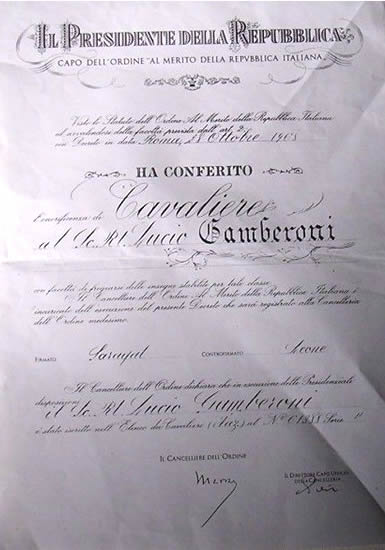 IL PRESIDENTE DELLA REPUBBLICA
CAPO DELL'ORDINE "AL MERITO DELLA REPVBBLICA ITALIANA"
Visto lo Statuto dell'Ordine Al Merito della Repubblica Italiana
ed avvalendosi della facoltà prevista dall'art. 2
con Decreto in data Roma, 28 Ottobre 1968
HA CONFERITO
l'onorificenza di Cavaliere
al Lucio Gamberoni
con facoltà di fregiarsi delle insegne stabilite per tale classe.
Il Cancelliere dell'Ordine Al Merito della Repubblica Italiana è
incaricato dell'esecuzione del presente Decreto che sarà registrato alla Cancelleria
dell'Ordine medesimo.
FIRMATO Saragat CONTROFIRMATO Leone
Il Cancelliere dell'Ordine dichiara che in esecuzione delle Presidenziali
disposizioni il Lucio Gamberoni
è stato iscritto nell'Elenco dei Cavalieri (Naz.) al N° Serie II
IL CANCELLIERE DELL'ORDINE
IL DIRETTORE CAPO UFFICIO
DELLA CANCELLERIA